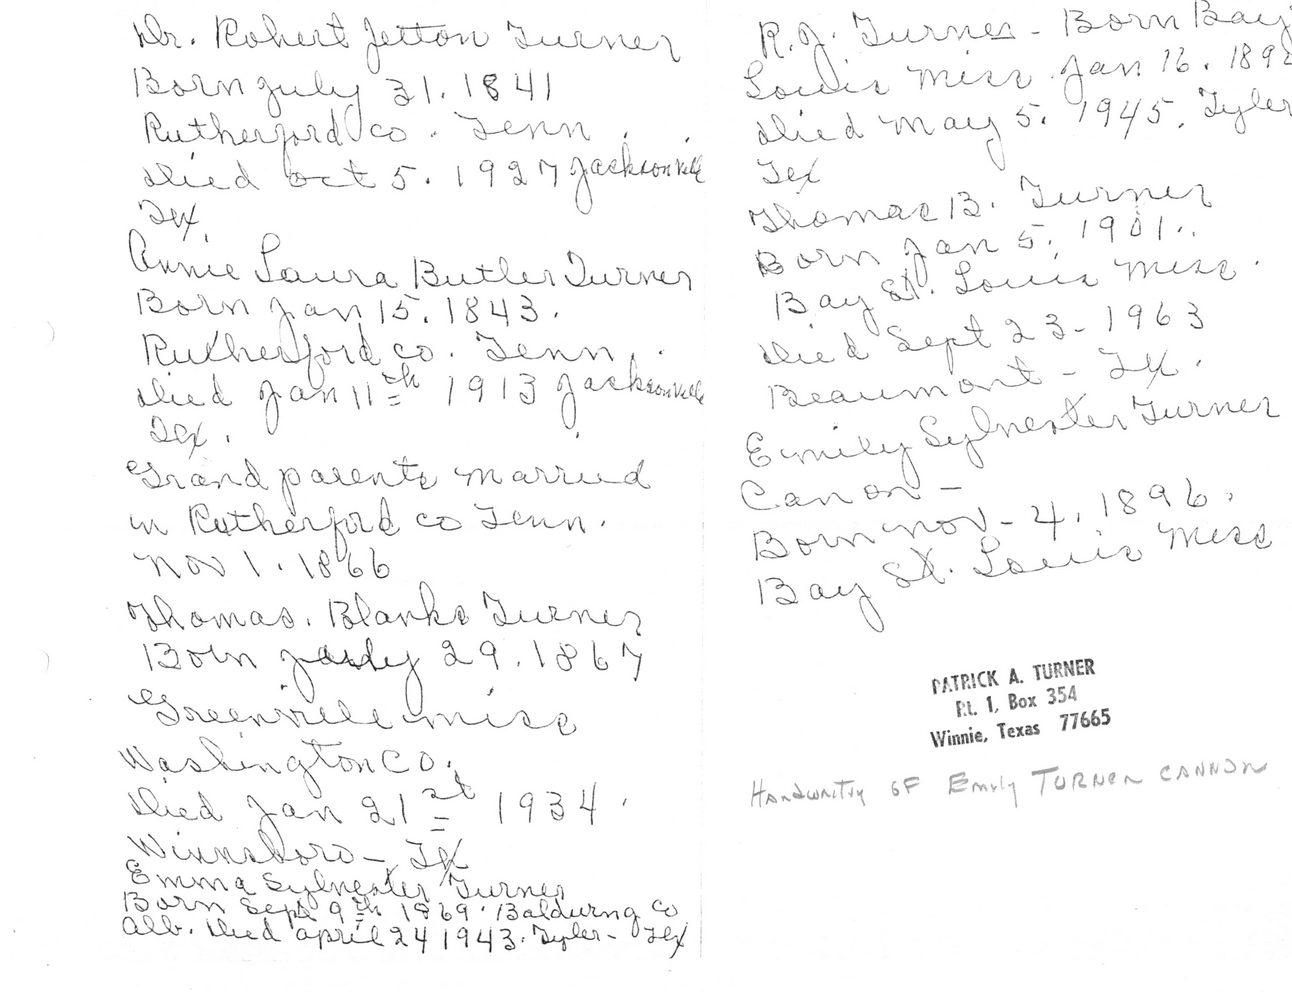 Dr. Robert Jetton Turner
Born July 31. 1841
Rutherford co. Tenn.
Died Oct 5. 1927 Jacksonville
Tex.
Annie Laura Butler Turner
Born Jan 15. 1843.
Rutherford co. Tenn.
Died Jan 11th 1913 Jacksonville
Tex.
Grand parents married
in Rutherford co Tenn.
Nov 1. 1866
Thomas. Blanks Turner
Born July 29. 1867
Greenville Miss
Washington Co.
Died Jan 21st 1934.
Winnsboro - Tex
Emma Sylvester Turner
Born Sept 9th 1869. Co
Alb. Died April 24 1943. Tyler - Tex
R.J. Turner - Born Bay
Louis Miss Jan 16. 189
Died May 5. 1945. Tyler
Tex
Thomas B. Turner
Born Jan 5. 1901.
Bay St. Louis Miss.
Died Sept 23 - 1963
Beaumont - Tx.
Emily Sylvester Turner
Canon -
Born Nov - 4. 1896.
Bay St. Louis Miss
PATRICK A. TURNER
Rt. 1, Box 354
Winnie, Texas 77665
Handwriting OF Emily TURNER CANNON